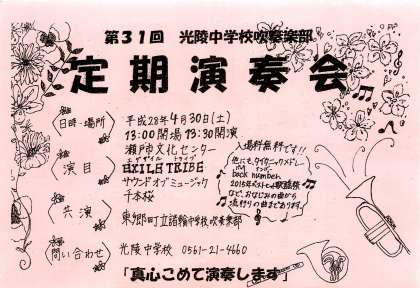 第31回 光陵中学校吹奏楽部
定期演奏会
日時・場所
平成28年4月30日(土)
13:00開場 13:30開演
瀬戸市文化センター
演目
エグザイル トライブ
EXILE TRIBE
サウンドオブミュージック
千本桜
入場料無料です!!
他にも、タイタニックメドレー
back number、
2015年ベストヒット歌謡祭
など、おなじみの曲から
流行りの曲まであります。
共演
東郷町立諸輪中学校吹奏楽部
問い合わせ
光陵中学校 0561-21-4660
「真心こめて演奏します」